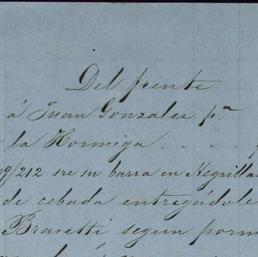 Del frente
á Juan Gonzalez pª
la Hormiga . . . .
99/212 sre su barra en Negrilla
de cebada entregándole
Brasetti segun porm